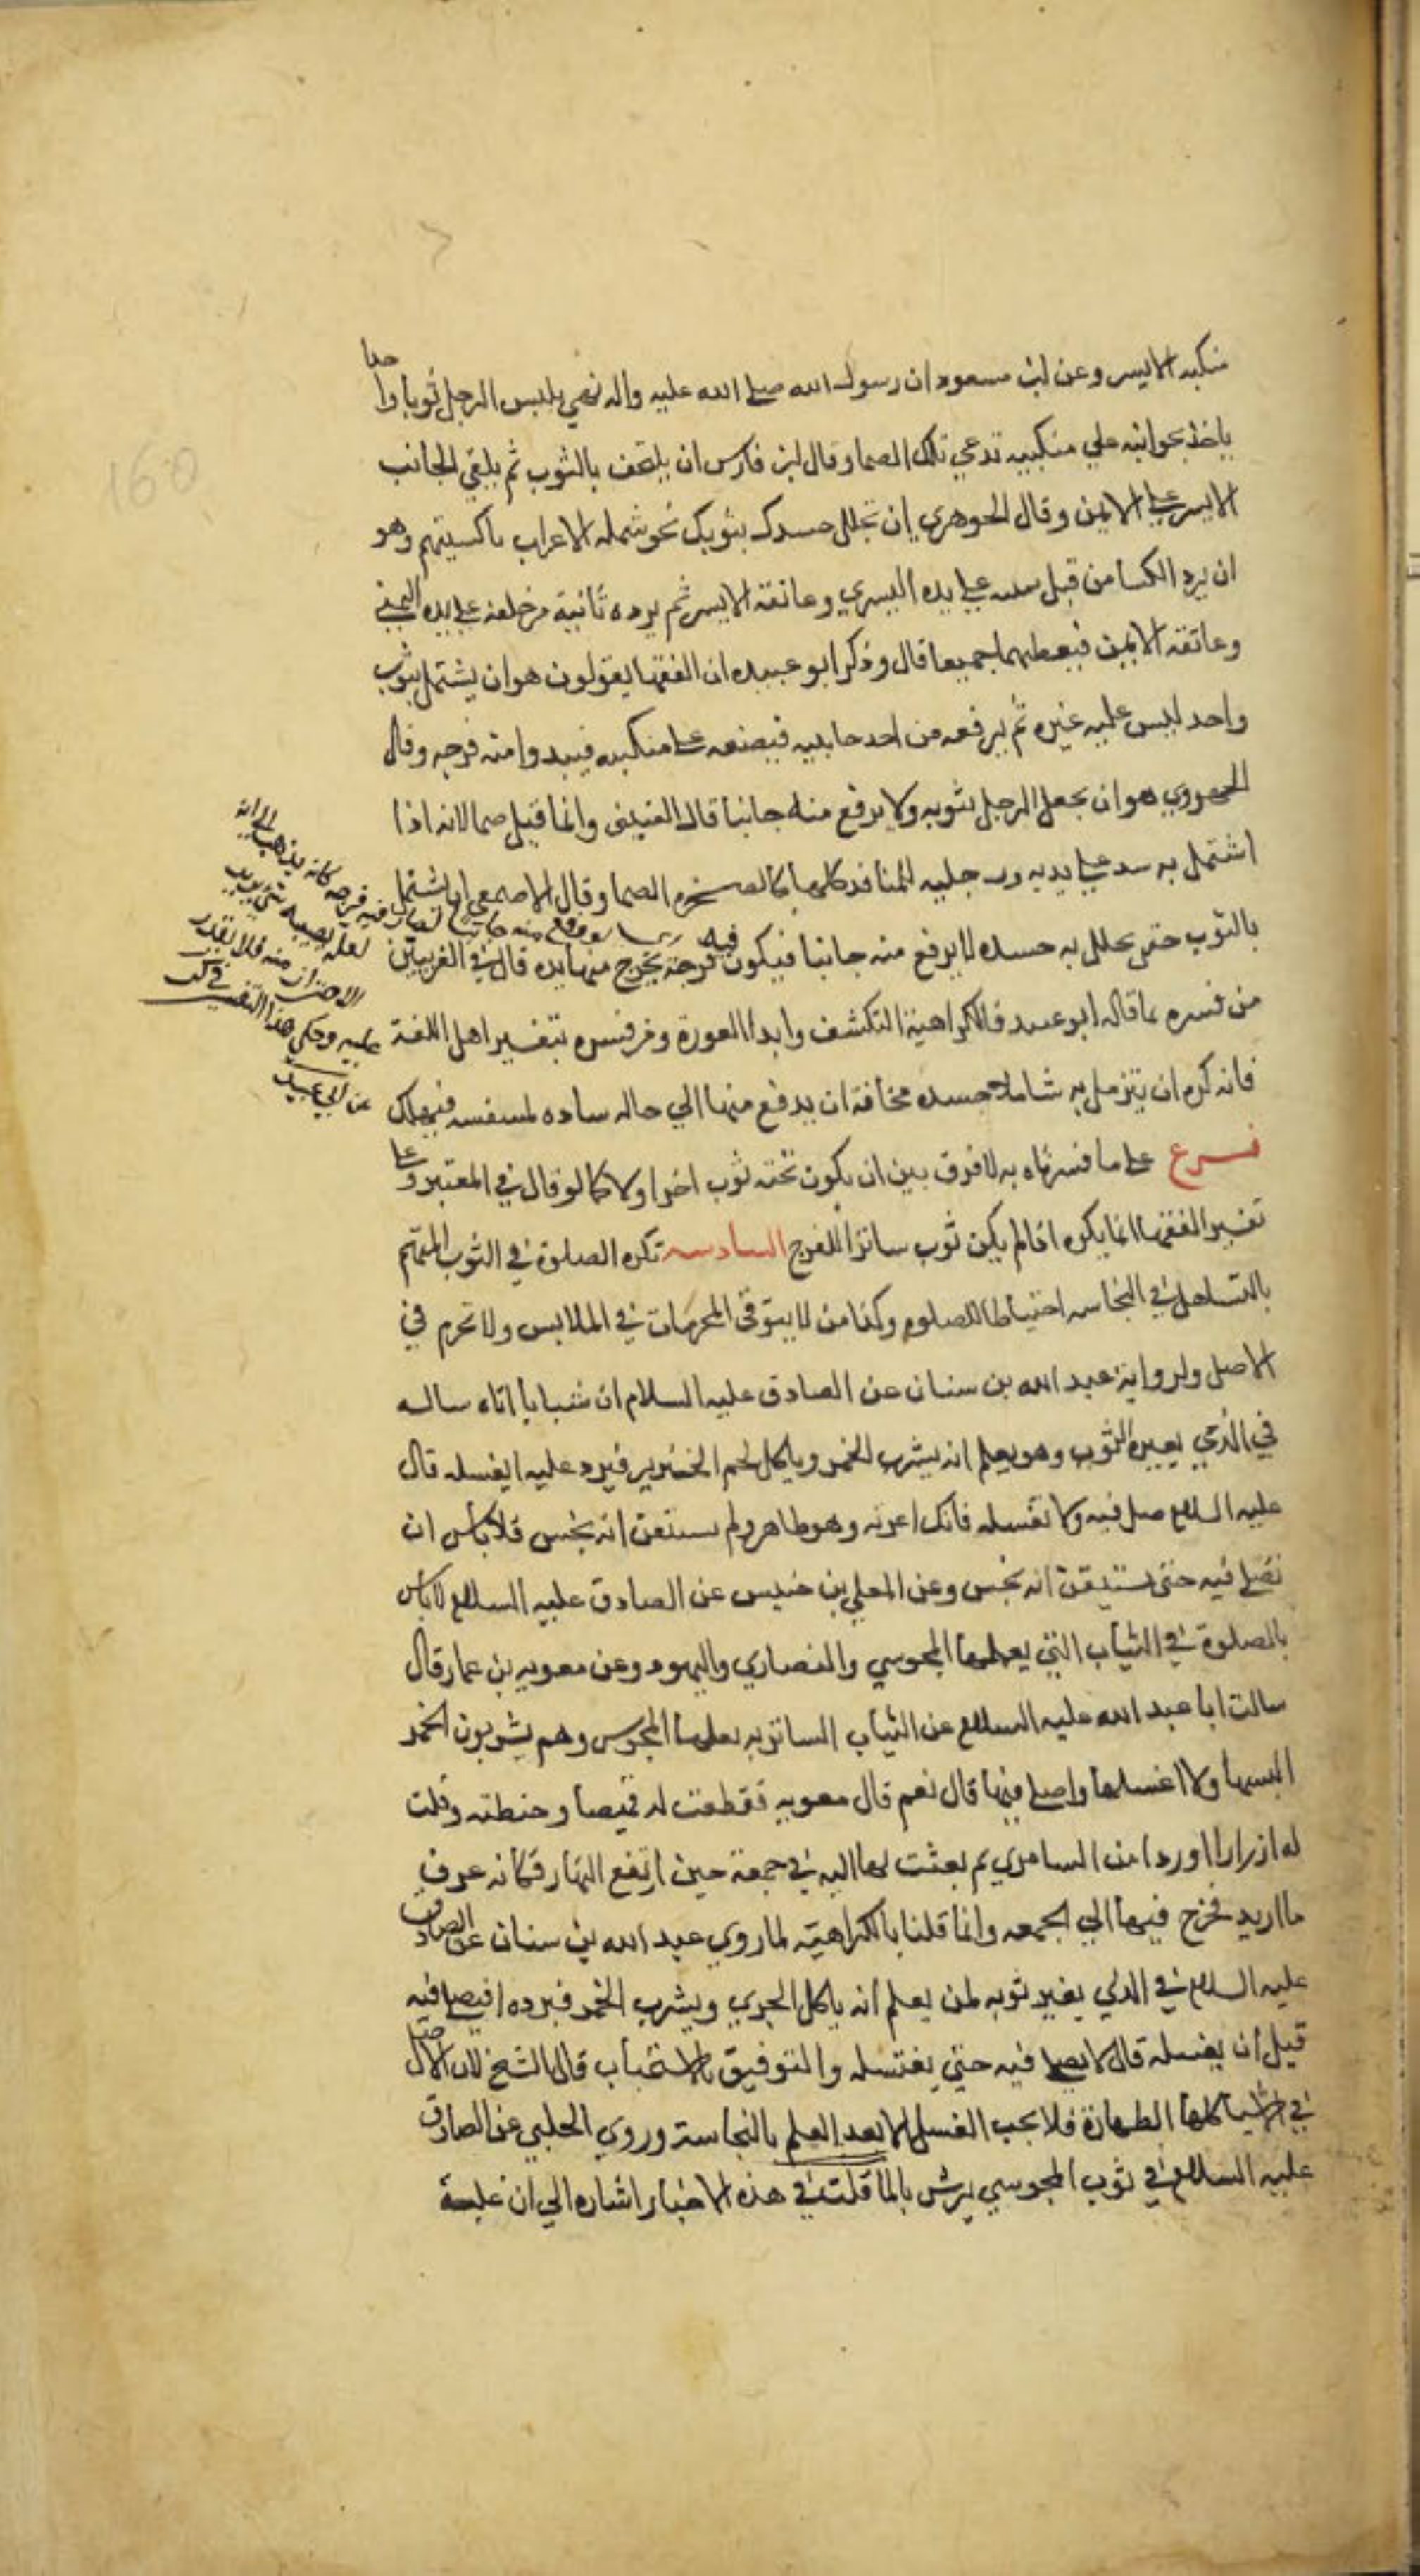 منكبه الايسر وعن ابن مسعود ان رسول الله صلى الله عليه واله نهى يلبس الرجل ثوبا واحدا
ياخذ بجوانبه علي منكبيه تدعي تلك الصما وقال ابن فارس ان يلتحف بالثوب ثم يلقي الجانب
الايسر على الايمن وقال الجوهري ان تجلل جسدك بثوبك نحو شملة الاعراب باكسيتهم وهو
ان يرد الكسا من قبل يمينه على يده اليسري وعاتقه الايسر ثم يرده ثانية من خلفه على يده اليمني
وعاتقه الايمن فيغطيهما جميعا قال وذكر ابو عبيده ان الفقها يقولون هو ان يشتمل بثوب
واحد ليس عليه غيره ثم يرفعه من احد جانبيه فيضعه على منكبيه فيبدوا منه فرجه وقال
الهروي هو ان يجعل الرجل بثوبه ولا يرفع منه جانبا قال القتيبي وانما قيل صما لانه اذا
اشتمل به سد على يديه ورجليه المنافذ كلها كالصخرة الصما وقال الاصمعي ان يشتمل
بالثوب حتى يجلل به جسده لا يرفع منه جانبا فيكون فيه فرجة يخرج منها يده قال في الغريبين
من فسره بما قاله ابو عبيد فالكراهية التكشف وابدا العورة ومن فسره بتفسير اهل اللغة
فانه كره ان يتزمل به شاملا جسده مخافة ان يدفع منها الي حالة سادة لتنفسه فيهلك
فرع على ما فسرناه به لا فرق بين ان يكون تحته ثوب اخر اولا كما لو قال في المعتبر وعلى
تفسير الفقها انما يكره اذا لم يكن ثوب ساترا للفرج السادسه تكره الصلوة في الثوب المتهم
بالتساهل في النجاسه احتياطا للصلوة وكذا من لا يتوقى المحرمات في الملابس ولا تحرم في
الاصل ولرواية عبد الله بن سنان عن الصادق عليه السلام ان شبابا اتاه ساله
في الذمي يعيره الثوب وهو يعلم انه يشرب الخمر وياكل لحم الخنزير فيرد عليه ايغسله قال
عليه السلام صل فيه ولا تغسله فانك اعرته وهو طاهر ولم تستيقن انه نجس فلا باس ان
تصلى فيه حتى تستيقن انه نجس وعن المعلي بن خنيس عن الصادق عليه السلام لا باس
بالصلوة في الثياب التي يعملها المجوسي والنصاري واليهود وعن معويه بن عمار قال
سالت ابا عبد الله عليه السلام عن الثياب السابريه يعملها المجوس وهم يشربون الخمر
البسها ولا اغسلها واصلي فيها قال نعم قال معويه فقطعت له قميصا وخطته وفتلت
له ازرارا اوردا من السامري ثم بعثت بها اليه في جمعة حين ارتفع النهار فكانه عرف
ما اريد فخرج فيها الي الجمعه وانما قلنا بالكراهية لما روي عبد الله بن سنان عن الصادق
عليه السلام في الذي يعير ثوبه لمن يعلم انه ياكل الجري ويشرب الخمر فيرده ايصلي فيه
قبل ان يغسله قال لا يصلي فيه حتي يغتسله والتوفيق بالاستحباب قال الشيخ لان الاصل
في الاشيا كلها الطهارة فلا يجب الغسل الا بعد العلم بالنجاسة وروي الحلبي عن الصادق
عليه السلام في ثوب المجوسي يرش بالما قلت في هذه الاخبار اشاره الي ان غلبة
فرجه كانه يذهب الي انه
لعله يصيبه شي يريد
الاحتراز منه فلا يقدر
عليه وحكي هذا التفسير
عن ابي عبيد
160